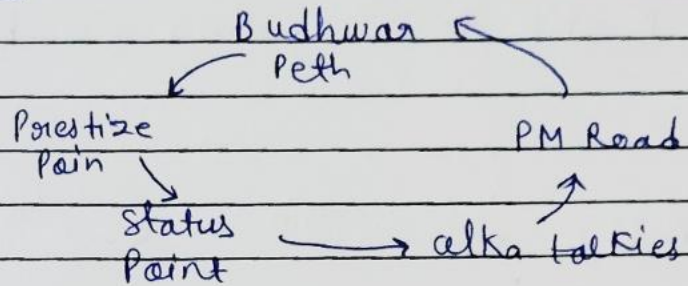 Budhwar
Peth
Prestize
Pain
PM Road
Status
Point
alka talkies